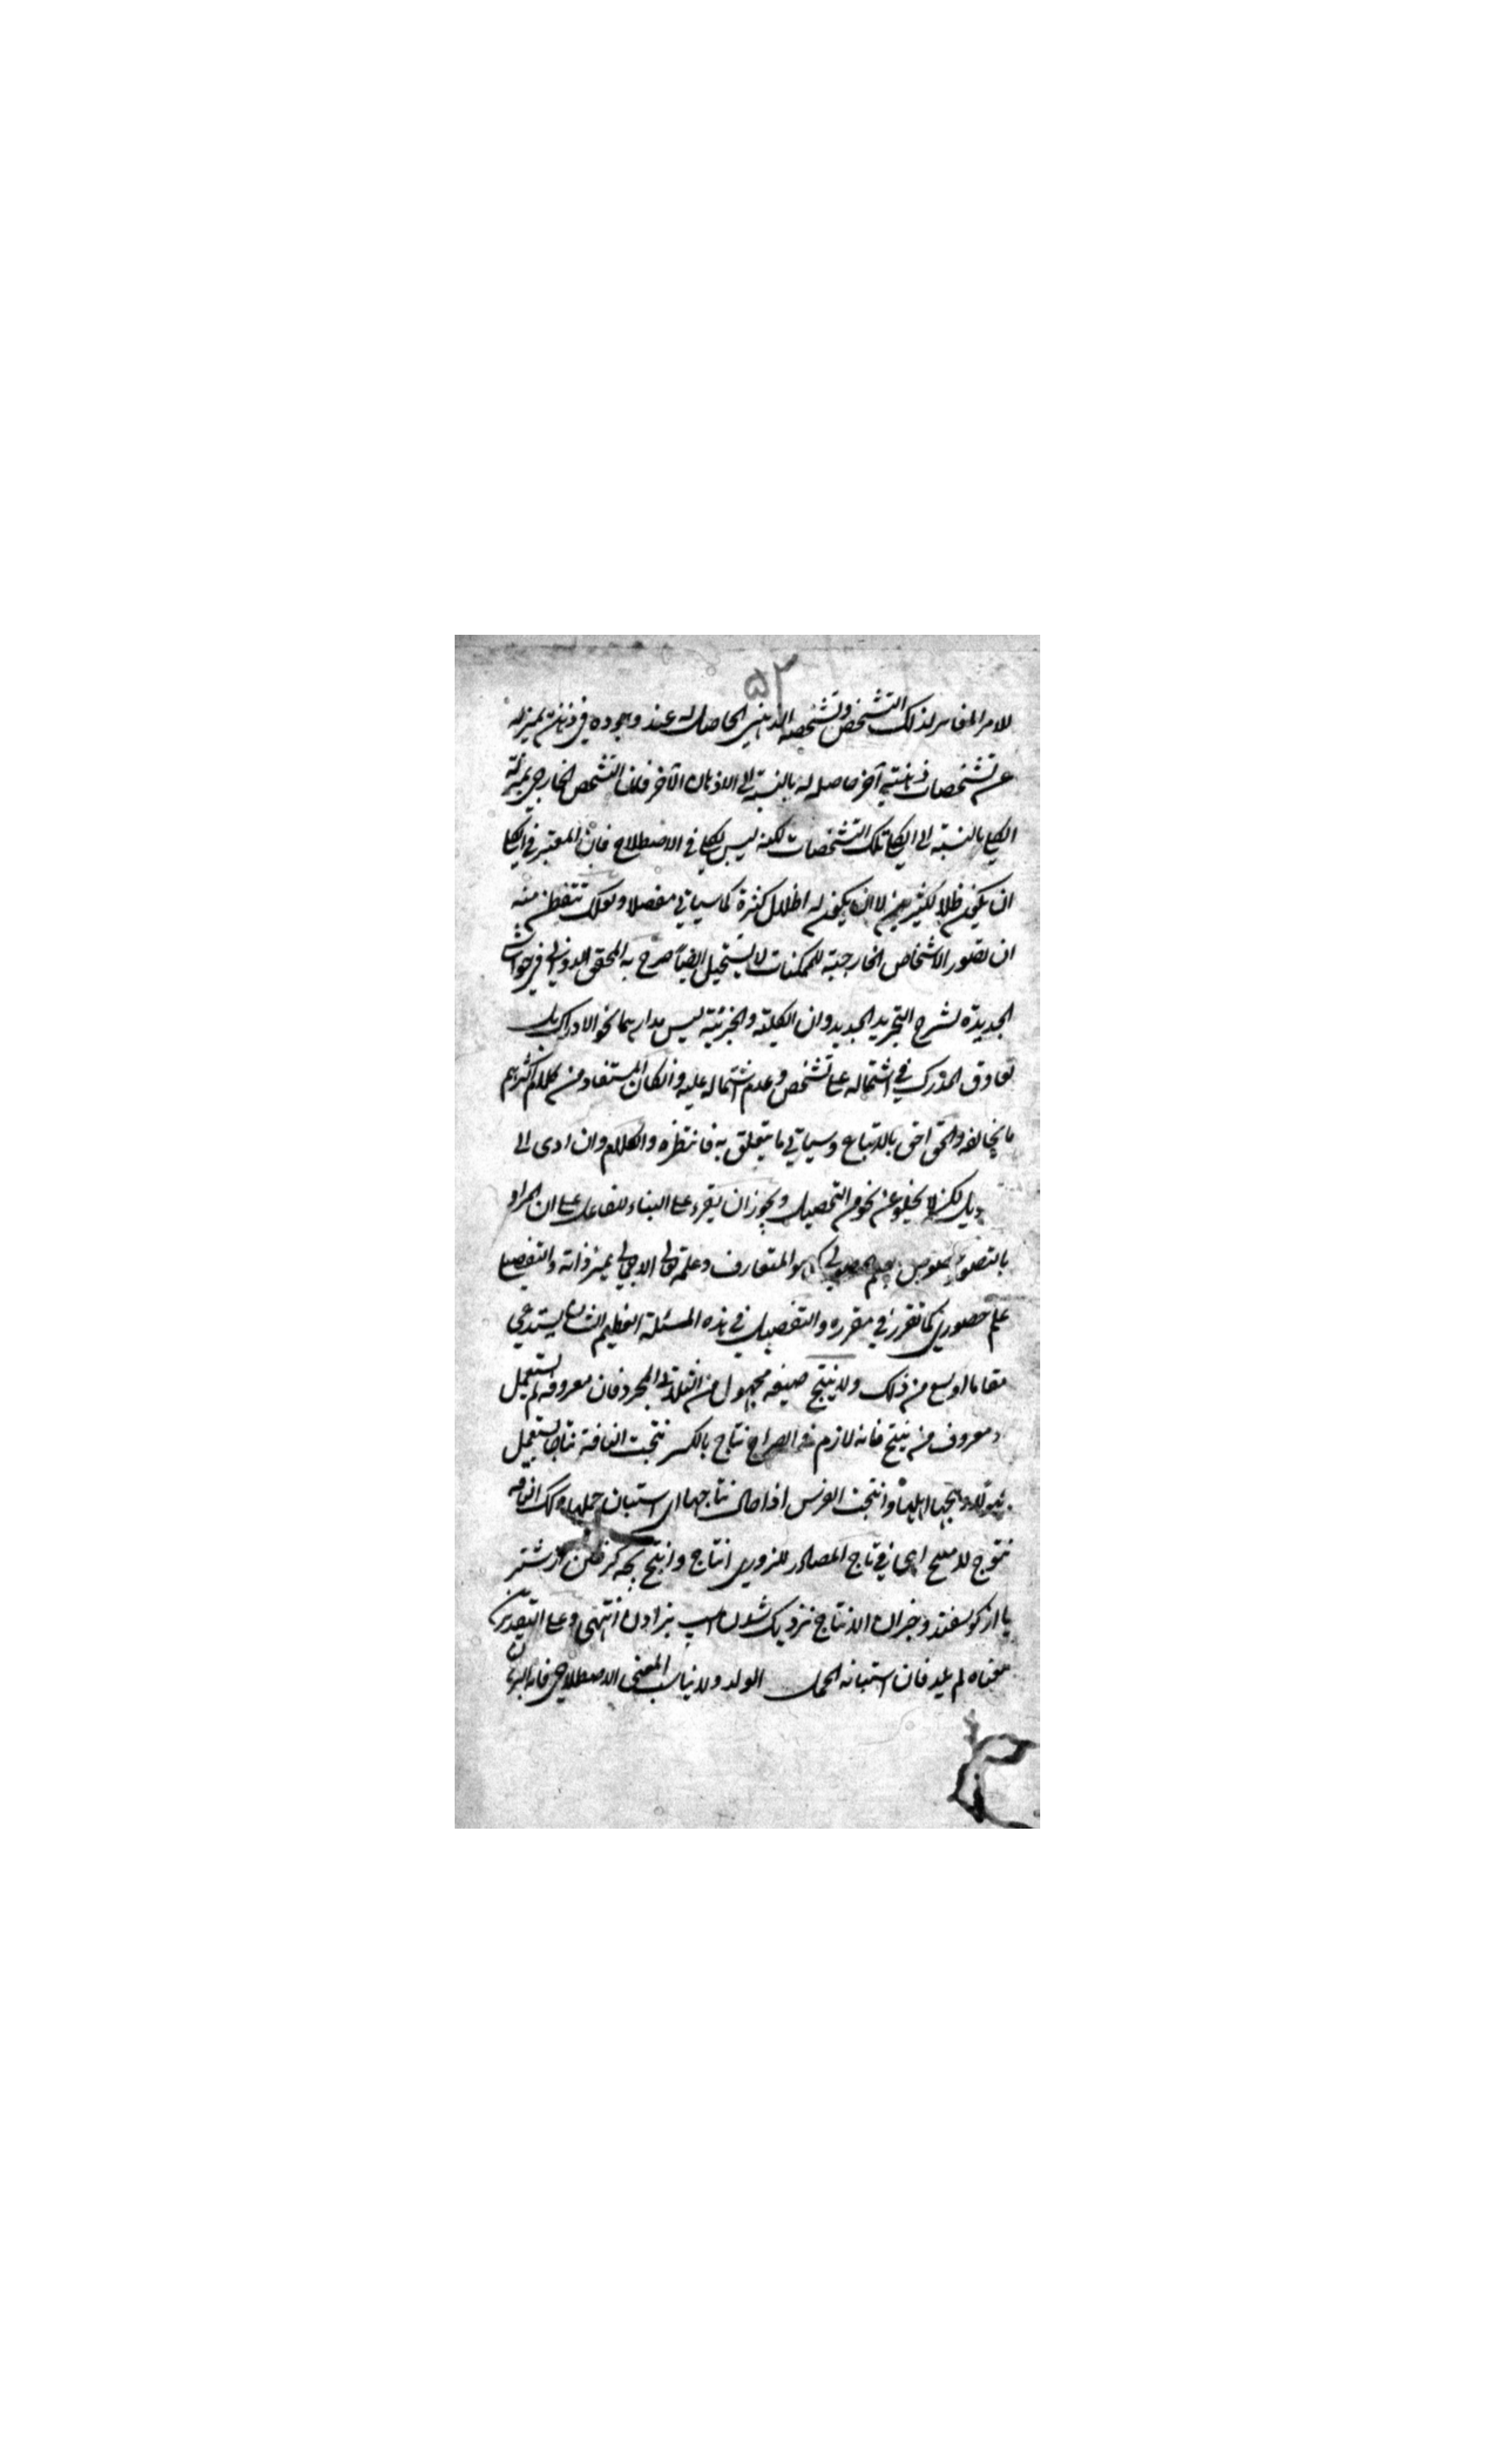 ۵۲
للامر المغاير لذلك التشخص وتشخصه الذهني الحاصل له عند وجوده في ذهنك بميزله
عن تشخصات ذهنية آخر حاصله له بالنسبة الى الاذهان الآخر فلان التشخص الخارجي بمنزلة
الكلي بالنسبة الى تلك التشخصات لكنه ليس بكلي في الاصطلاح فان المعتبر في الكلي
ان يكون ظلا لكثيرين لا ان يكون له اظلال كثيرة كما سياتي مفصلا ولعلك تتفطن منه
ان تصور الاشخاص الخارجية للممكنات لا يستحيل ايضا صرح به المحقق الدواني في حواشيه
الجديدة لشرح التجريد الجديد وان الكلية والجزئية ليس مدارهما نحو الادراك بل
تفاوت المدرك في اشتماله على تشخص وعدم اشتماله عليه وان كان المستفاد من كلام اكثرهم
ما يخالفه والحق احق بالاتباع وسياتي ما يتعلق به فانتظره والكلام وان ادى الى
لكن لا يخلو عن نحو من التحصيل ويجوز ان يقرء على البناء للفاعل على ان المراد
بالتصور هو المتعارف وعلمه تعالى الاجمالي عين ذاته والتفصيلي
علم حضوري كما تقرر في مقرره والتفصيل في هذه المسئلة العظيم الشان يستدعي
مقاما اوسع من ذلك ولا ينتج صيغه مجهول من الثلاثي المجرد فان معروفه لم يستعمل
ومعروف من ينتج فانه لازم في الصراح نتاج بالكسر نتجت الناقة نتاجا يستعمل
اهلها وانتجت الفرس اذا حان نتاجها اي استبان حملها وكذلك الناقة
نتوج لا منتج في تاج المصادر للزوزني انتاج وانتج بچه گرفتن از شتر
يا از گوسفند وجز آن الانتاج نزديک شدن اسب بزادن انتهى وعلى التقديرين
معناه لم يلد فان استبانه الحمل الولد ولا يناسب المعنى الاصطلاحي فانه البرهان